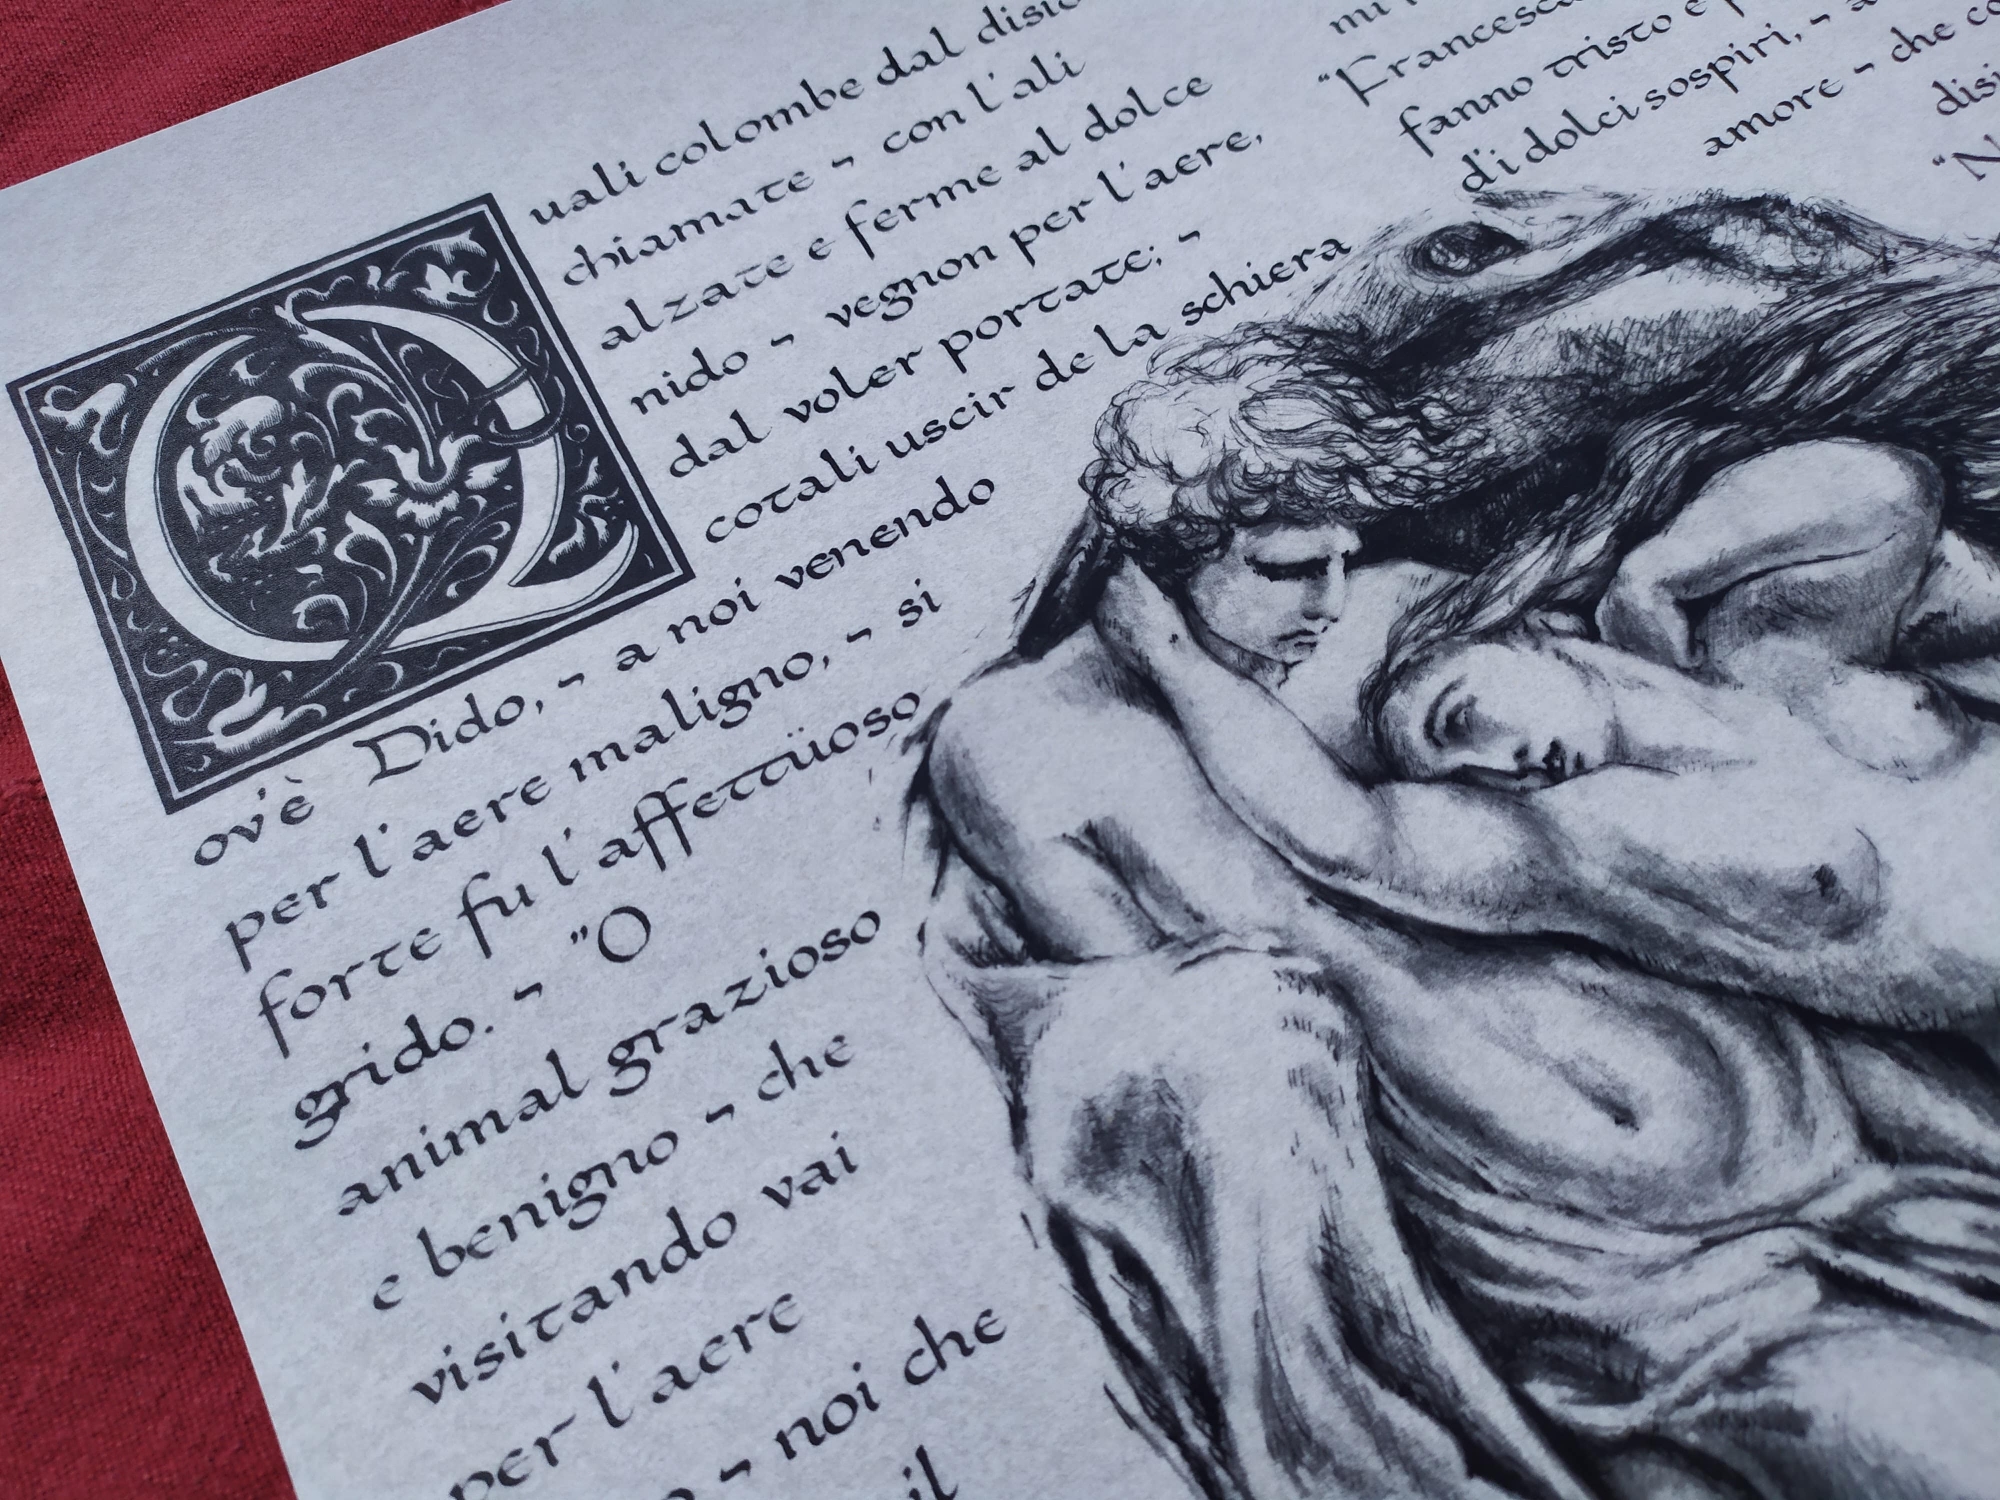 Quali colombe dal disio
chiamate ~ con l'ali
alzate e ferme al dolce
nido ~ vegnon per l'aere,
dal voler portate; ~
cotali uscir de la schiera
ov'è Dido, ~ a noi venendo
per l'aere maligno, ~ si
forte fu l'affettüoso
grido. ~ "O
animal grazioso
e benigno ~ che
visitando vai
per l'aere
~ noi che
il
mi
"Francesca
fanno tristo e
d'i dolci sospiri, ~ a
amore ~ che co
disi
"N